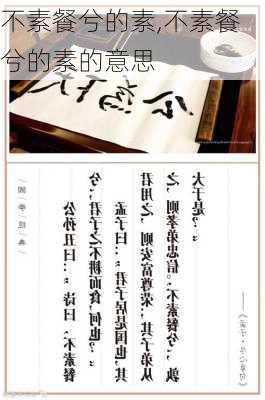 不素餐兮的素,不素餐
兮的素的意思
/國/學/經/典/
公孙丑曰：“《诗》曰‘不素餐
兮’，君子之不耕而食，何也？”
孟子曰：“君子居是国也，其
君用之，则安富尊荣；其子弟从
之，则孝弟忠信。‘不素餐兮’，孰
大于是？”
——《孟子·尽心章句》